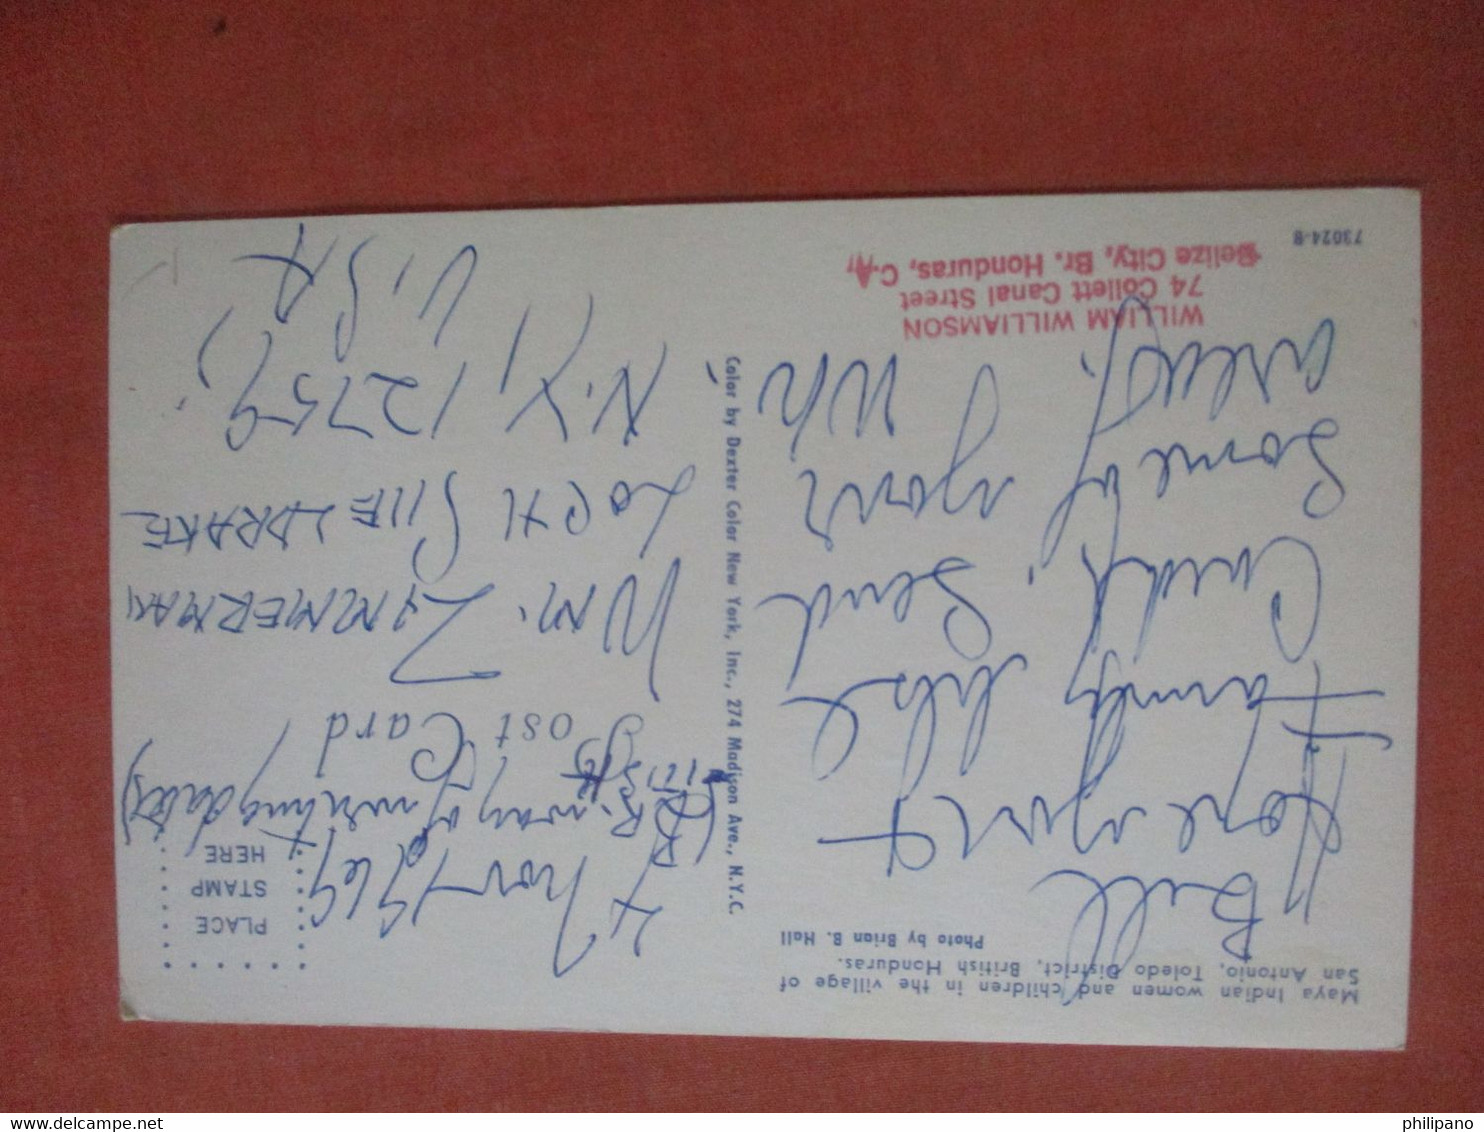 Maya Indian women and children in the village of
San Antonio, Toledo District, British Honduras.
Photo by Brian B. Hall
Bill
Hope your &
Family like
Cards, Send
Some of your
areas. Wh
WILLIAM WILLIAMSON
74 Collett Canal Street
Belize City, Br. Honduras, C.A.
73024-B
Color by Dexter Color New York, Inc., 274 Madison Ave., N.Y.C.
PLACE
STAMP
HERE
4 Nov 1969
(Br. way of writing dates)
Post Card
Wm. ZIMMERMAN
LOCH SHELDRAKE
N.Y, 12759,
U.S.A
philipano